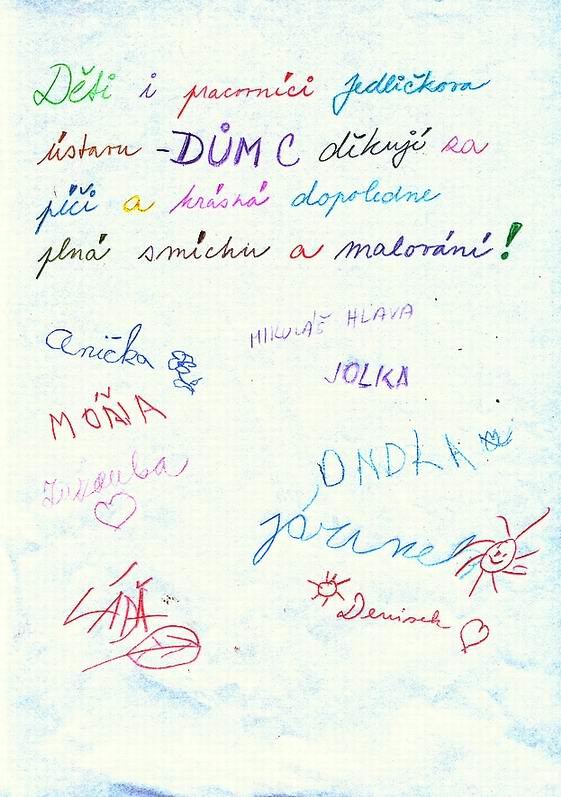 Děti i pracovníci Jedličkova
ústavu - DŮM C děkují za
péči a krásná dopoledne
plná smíchu a malování!
Anička
MIKULÁŠ HLAVA
JOLKA
MÓŇA
ONDRA
Zuzanka
Jiránek
LÁĎA
Denisek